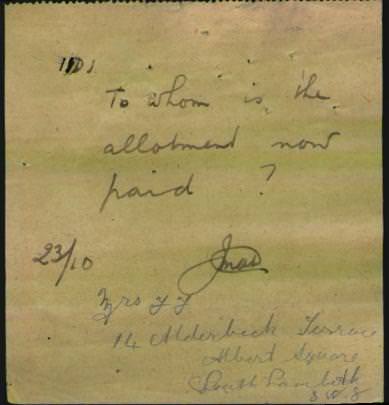 To whom is the
allotment now
paid ?
23/10
Mrs
14 Alderbeck Terrace
Albert Square
South Lambeth
S.W.8